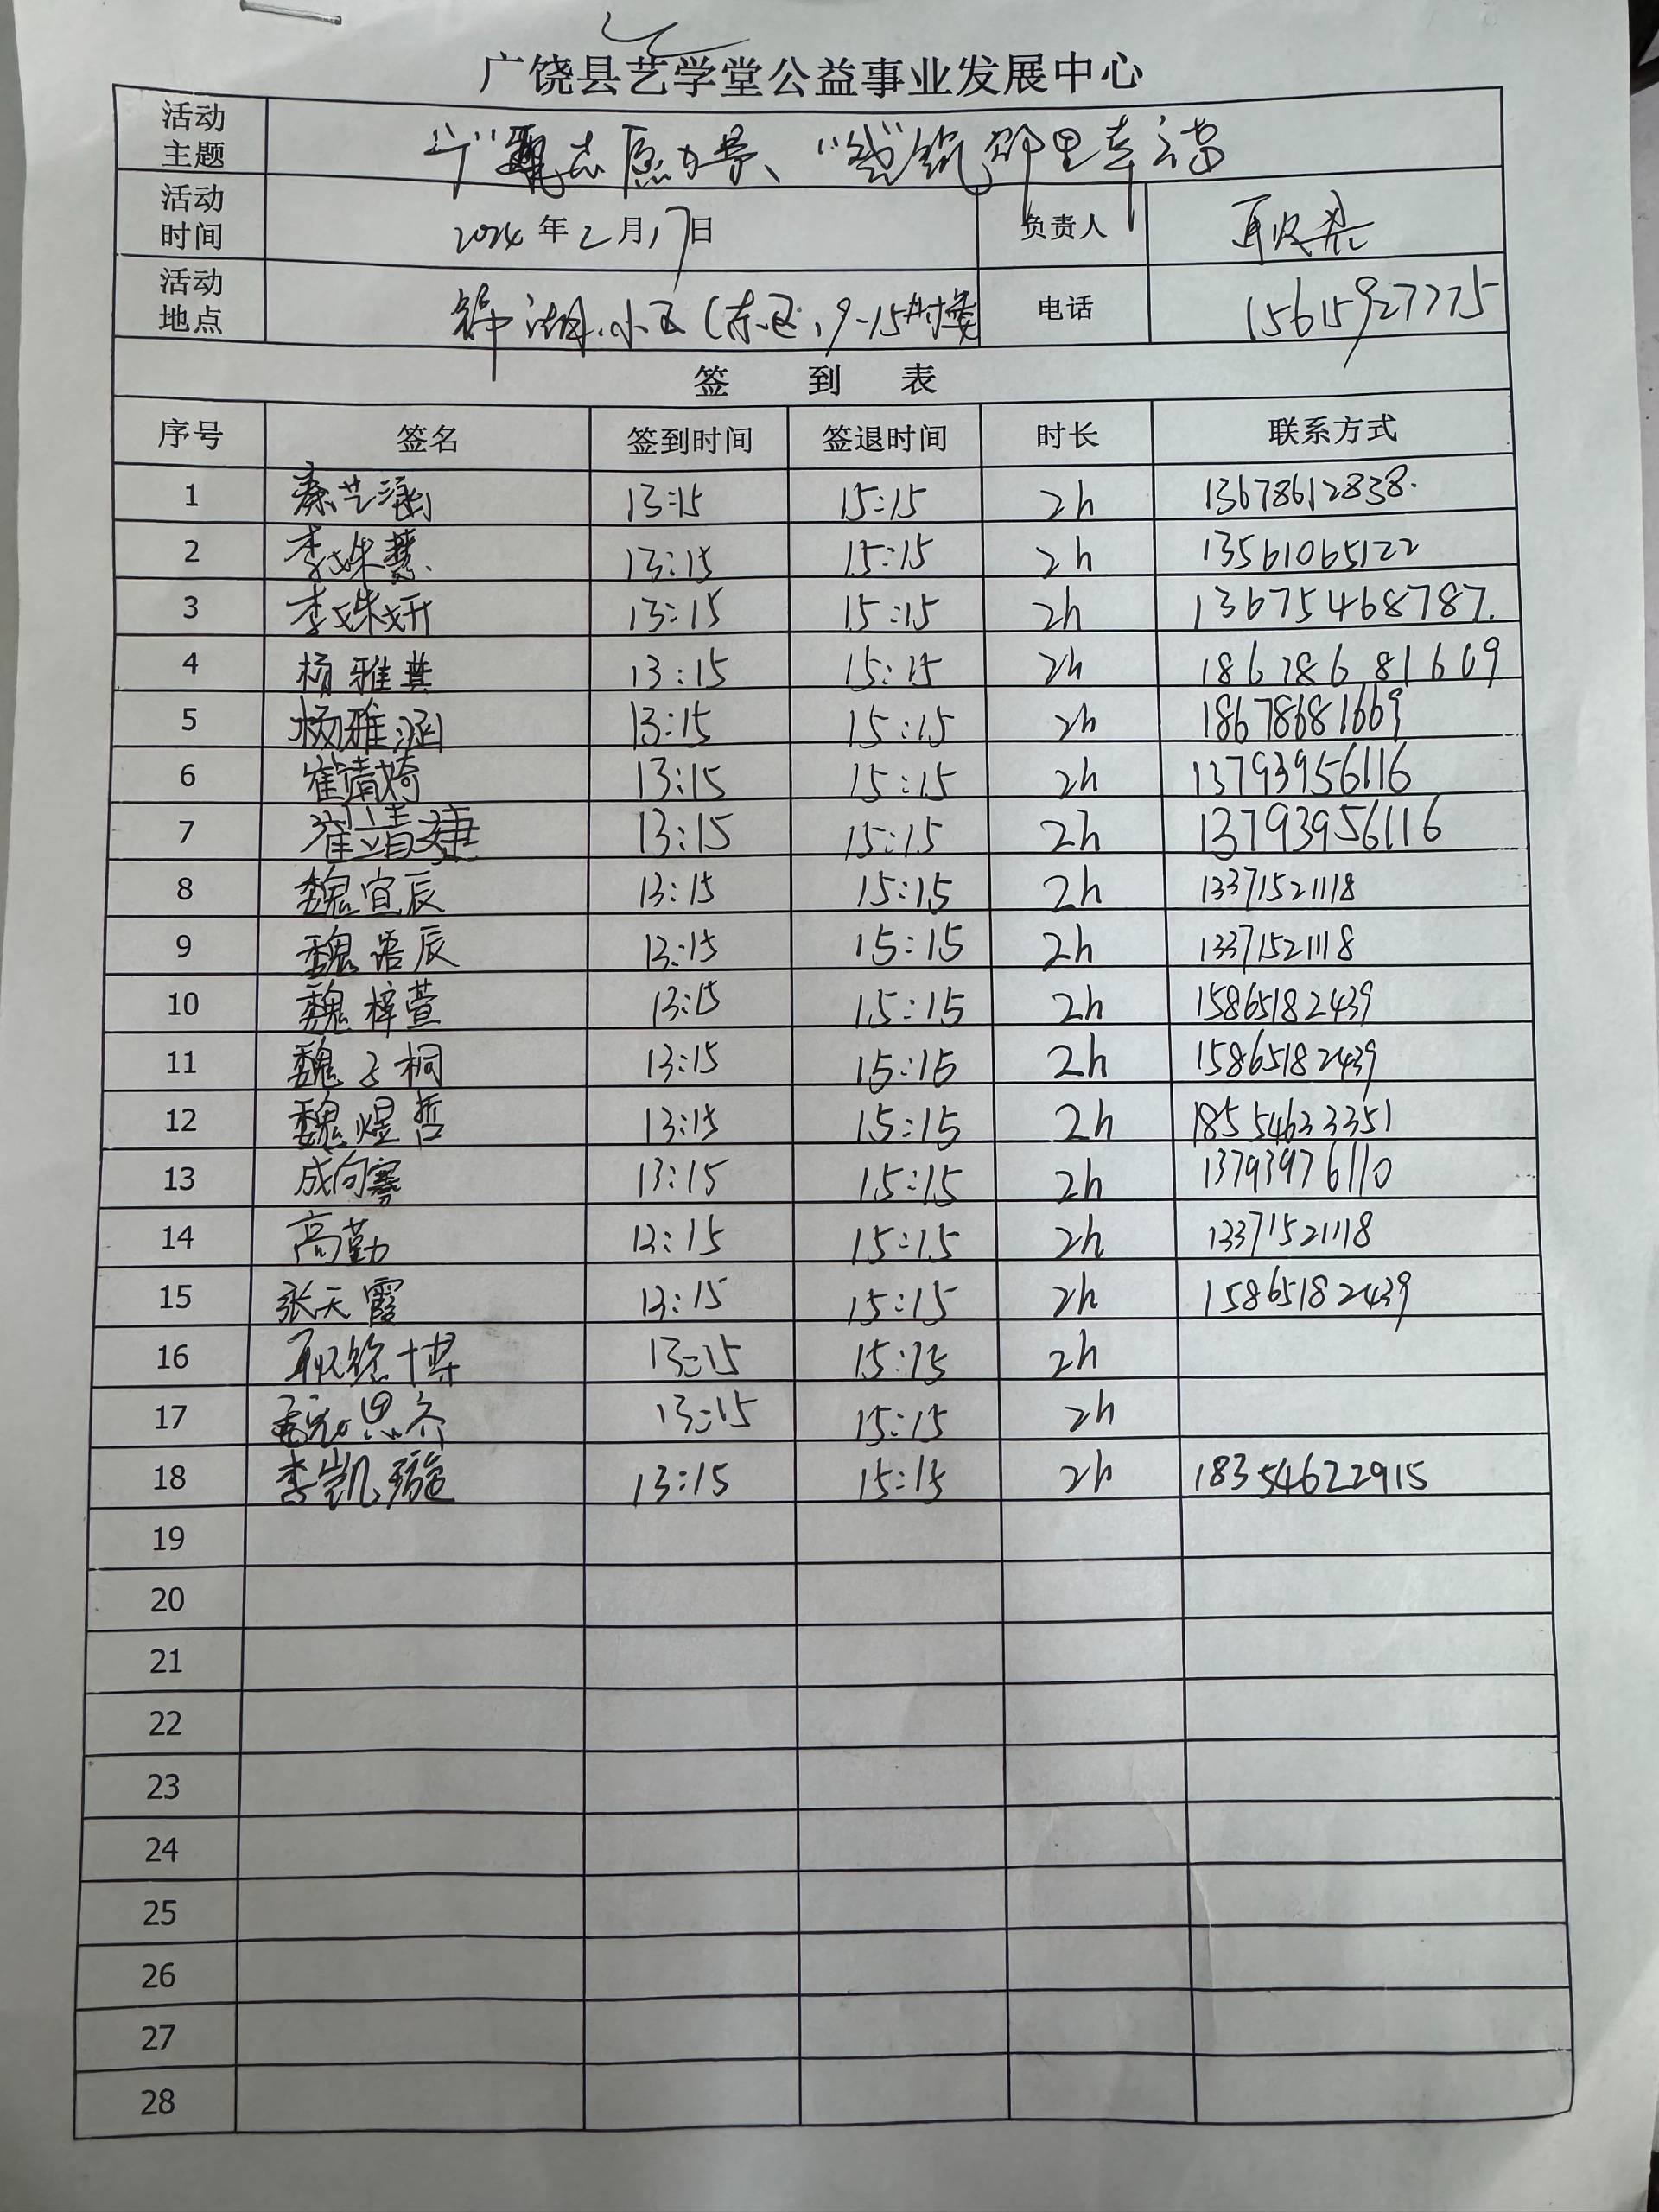 广饶县艺学堂公益事业发展中心
活动主题 志愿 邻里幸福
活动时间 2024年2月17日 负责人 耿
活动地点 锦湖小区(东区,9-15#楼 电话 15615927775
签 到 表
序号 签名 签到时间 签退时间 时长 联系方式
1 秦艺涵 13:15 15:15 2h 13678612838.
2 李姝慧 13:15 15:15 2h 13561065122
3 李姝妍 13:15 15:15 2h 13675468787.
4 杨雅 13:15 15:15 2h 18678681609
5 杨雅涵 13:15 15:15 2h 18678681669
6 崔婧琦 13:15 15:15 2h 13793956116
7 崔婧婕 13:15 15:15 2h 13793956116
8 魏宜辰 13:15 15:15 2h 13371521118
9 魏语辰 13:15 15:15 2h 13371521118
10 魏梓萱 13:15 15:15 2h 15865182439
11 魏子桐 13:15 15:15 2h 15865182439
12 魏煜哲 13:15 15:15 2h 18554633351
13 成向骞 13:15 15:15 2h 13793976110
14 高勤 13:15 15:15 2h 13371521118
15 张天霞 13:15 15:15 2h 15865182439
16 耿铭博 13:15 15:15 2h
17 思齐 13:15 15:15 2h
18 李凯璇 13:15 15:15 2h 18354622915
19
20
21
22
23
24
25
26
27
28